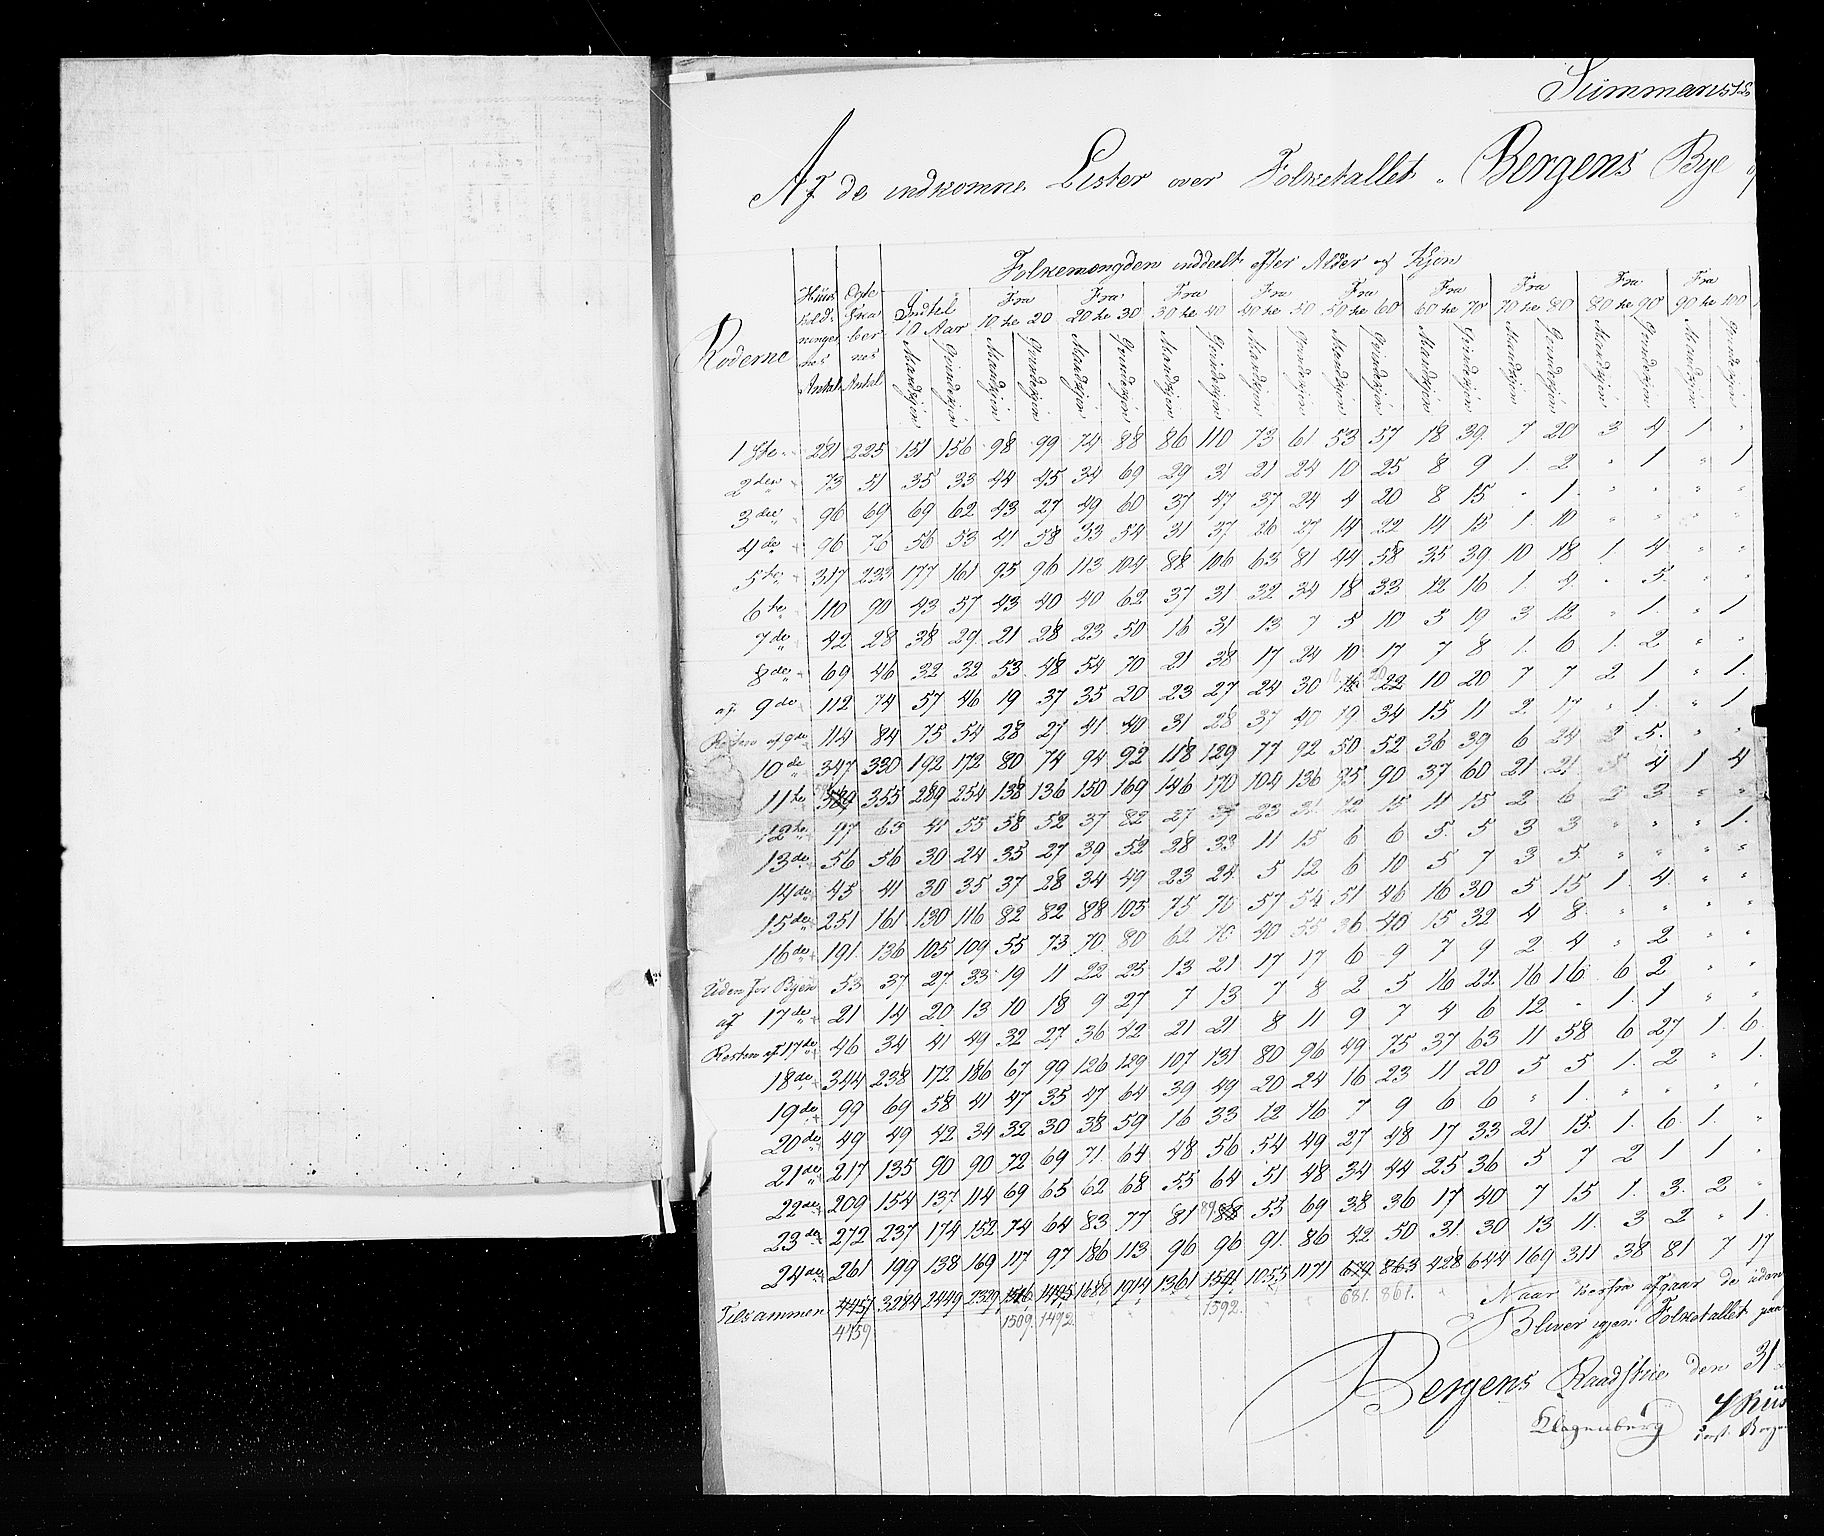 Summarisk
Af de indkomne Lister over Folketallet i Bergens Bye
Folkemængden inddeelt efter Alder og Kjøn
Roderne | Huus holdningernes Antal | Ægteskabernes Antal | Indtil 10 Aar | Fra 10 til 20 | Fra 20 til 30 | Fra 30 til 40 | Fra 40 til 50 | Fra 50 til 60 | Fra 60 til 70 | Fra 70 til 80 | Fra 80 til 90 | Fra 90 til 100
Mandkjøn Qvindekjøn Mandkjøn Qvindekjøn Mandkjøn Qvindekjøn Mandkjøn Qvindekjøn Mandkjøn Qvindekjøn Mandkjøn Qvindekjøn Mandkjøn Qvindekjøn Mandkjøn Qvindekjøn Mandkjøn Qvindekjøn Mandkjøn Qvindekjøn
1ste 281 225 151 156 98 99 74 88 86 110 73 61 53 57 18 39 7 20 3 4 1 "
2den 73 51 35 33 44 45 34 69 29 31 21 24 10 25 8 9 1 2 " 1 " 1
3die 96 69 69 62 43 27 49 60 37 47 37 24 4 20 8 15 " 1 " " " "
4de 96 76 56 53 41 58 33 54 31 37 26 27 14 22 14 15 1 10 " " " "
5te 317 233 177 161 95 96 113 104 88 106 63 81 44 58 35 39 10 18 1 4 " "
6te 110 90 43 57 43 40 40 62 37 31 32 34 18 33 12 16 1 4 " 5 " "
7de 42 28 38 29 21 28 23 50 16 31 13 7 5 10 3 19 3 12 " 1 " 1
8de 69 46 32 32 53 48 54 70 21 38 17 24 10 17 7 8 1 6 1 2 " "
af 9de 112 74 57 46 19 37 35 20 23 27 24 30 22 10 20 7 7 2 1 " 1
Resten af 9de 114 84 75 54 28 27 41 40 31 28 37 40 19 34 15 11 2 17 " 1 " 1
10de 347 330 192 172 80 74 94 92 118 129 77 92 50 52 36 39 6 24 2 5 " "
11te 389 355 289 254 138 136 150 169 146 170 104 136 75 90 37 60 21 21 5 4 1 4
12te 97 63 41 55 58 52 37 82 27 39 23 31 12 15 11 15 2 6 2 3 " "
13de 56 56 30 24 35 27 39 52 28 33 11 15 6 6 5 5 3 3 " " " 1
14de 45 41 30 35 37 28 34 49 23 24 5 12 6 10 5 7 3 5 " " " "
15de 251 161 130 116 82 82 88 105 75 70 57 54 51 46 16 30 5 15 1 4 " "
16de 191 136 105 109 55 73 70 80 62 70 40 55 36 40 15 32 4 8 " " " "
Uden for Byen 53 37 27 33 19 11 22 25 13 21 17 17 6 9 7 9 2 4 " 2 " "
af 17de 21 14 20 13 10 18 9 27 7 13 7 8 2 5 16 22 16 16 6 2 " "
Resten af 17de 46 34 41 49 32 27 36 42 21 21 8 11 9 7 4 6 12 " 1 1 " "
18de 344 238 172 186 67 99 126 129 107 131 80 96 49 75 37 63 11 58 6 27 1 6
19de 99 69 58 41 47 35 47 64 39 49 20 24 16 23 11 20 5 5 1 2 " 1
20de 49 49 42 34 32 30 38 59 16 33 12 16 7 9 6 6 " 1 " " " "
21de 217 135 90 90 72 69 71 64 48 56 54 49 27 48 17 33 21 15 1 6 1 "
22de 209 154 137 114 69 65 62 68 55 64 51 48 34 44 25 36 5 7 2 1 1 "
23de 272 237 174 152 74 64 83 77 81 89 88 55 69 38 36 17 40 7 15 1 3 2 "
24de 261 199 138 169 117 97 186 113 96 96 91 86 42 50 31 30 13 11 3 2 " 1
Tilsammen 4457 3284 2449 2329 1516 1495 1688 1914 1361 1591 1055 1171 679 863 428 644 169 311 38 81 7 17
4459 1509 1492 1592 681 861
Naar herfra afgaar de uden
Bliver igjen Folketallet paa
Bergens Raadstue den 31
Klagenberg